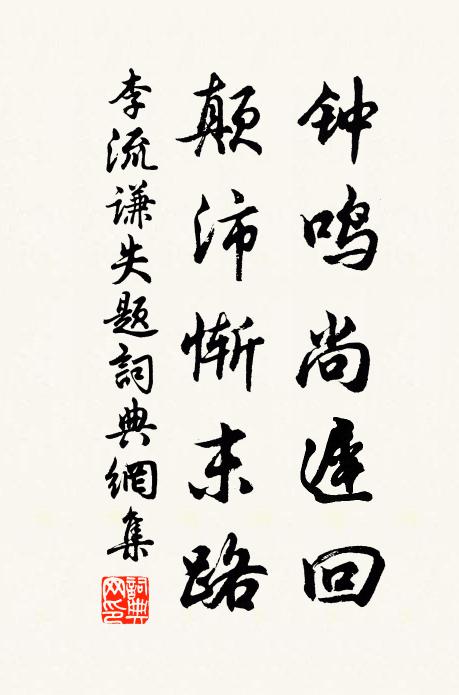 钟鸣尚遲回
颠沛慚末路
李流谦失题詞典網集
詞典网印